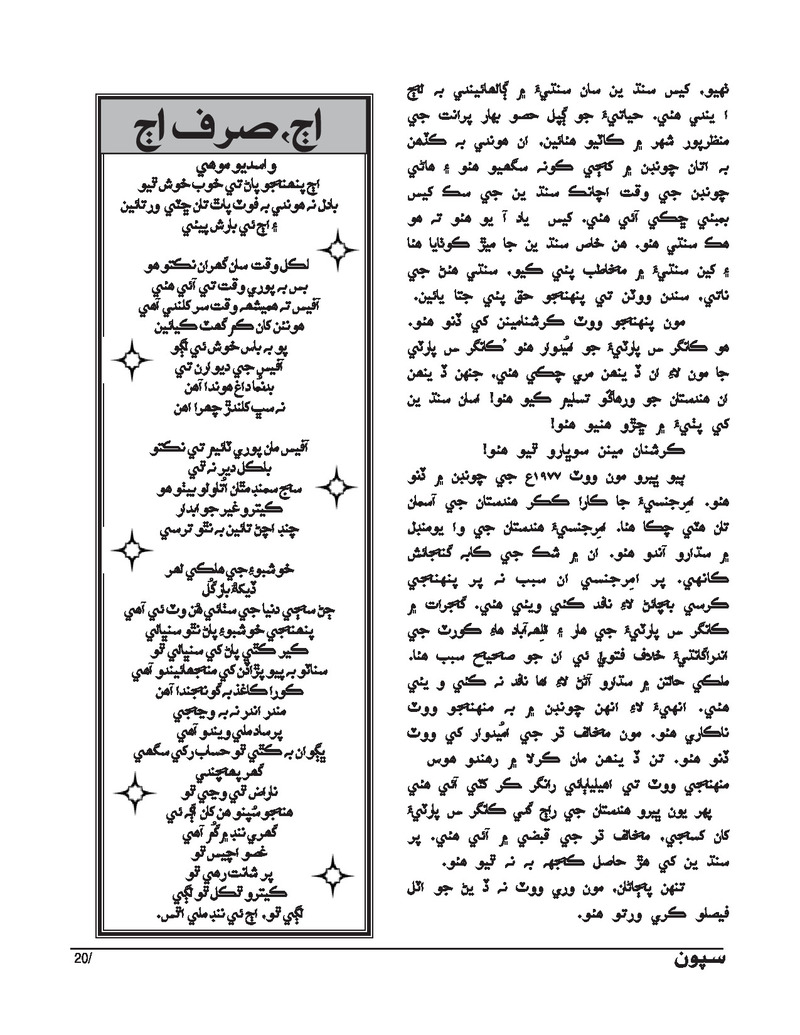 ٺهيو. ڪيس سنڌ ين سان سنڌيءَ ۾ ڳالهائيندي به لڄ
ا يندي هئي. حياتيءَ جو ڳپل حصو بهار پرانت جي
منظرپور شهر ۾ ڪاٽيو هئائين. ان هوندي به ڪڏهن
به اتان چونڊن ۾ کڄي ڪونہ سگهيو هئو ۽ هاڻي
چونڊن جي وقت اچانڪ سنڌ ين جي سڪ کيس
بمبئي ڇڪي آئي هئي. کيس ياد آ يو هئو ته هو
هڪ سنڌي هئو. هن خاص سنڌ ين جا ميڙ ڪوٺايا هئا
۽ کين سنڌيءَ ۾ مخاطب پئي ڪيو. سنڌي هئڻ جي
ناتي، سندن ووٽن تي پنهنجو حق پئي جتا يائين.
مون پنهنجو ووٽ ڪرشنامينن کي ڏنو هئو.
هو ڪانگر س پارٽيءَ جو اميُدوار هئو 'ڪانگر س پارٽي
جا مون لاءِ ان ڏ ينهن مري چڪي هئي، جنهن ڏ ينهن
ان هندستان جو ورهاڱو تسليم ڪيو هئو! اسان سنڌ ين
کي پٺيءَ ۾ ڇڙو هنيو هئو!
ڪرشنان مينن سوڀارو ٿيو هئو!
ٻيو ڀيرو مون ووٽ ۱۹۷۷ع جي چونڊن ۾ ڏنو
هئو. امِرجنسيءَ جا ڪارا ڪڪر هندستان جي آسمان
تان هٽي چڪا هئا. امِرجنسيءَ هندستان جي وا يومنڊل
۾ سڌارو آندو هئو. ان ۾ شڪ جي ڪابه گنجائش
ڪانهي. پر امِرجنسي ان سبب نہ پر پنهنجي
ڪرسي بچائڻ لاءِ نافذ ڪئي ويئي هئي. گجرات ۾
ڪانگر س پارٽيءَ جي هار ۽ الِهہ‌آباد هاءِ ڪورٽ جي
اندراگانڌيءَ خلاف فتويٰ ئي ان جو صحيح سبب هئا.
ملڪي حالتن ۾ سڌارو آڻڻ لاءِ اها نافذ نہ ڪئي و يئي
هئي. انهيءَ لاءِ انهن چونڊن ۾ به منهنجو ووٽ
ناڪاري هئو. مون مخالف ڌر جي اميُدوار کي ووٽ
ڏنو هئو. تن ڏ ينهن مان ڪرلا ۾ رهندو هوس
منهنجي ووٽ تي اهيليابائي رانگر ڪر کٽي آئي هئي
پهر يون ڀيرو هندستان جي راڄ گدي ڪانگر س پارٽيءَ
کان کسجي، مخالف ڌر جي قبضي ۾ آئي هئي. پر
سنڌ ين کي هڙ حاصل ڪجهہ به نہ ٿيو هئو.
تنهن پڄاڻان، مون وري ووٽ نہ ڏ يڻ جو اٽل
فيصلو ڪري ورتو هئو.
اڄ، صرف اڄ
واسديو موهي
اڄ پنهنجو پاڻ تي خوب خوش ٿيو
بادل نہ هوندي به فوٽ پاٿ تان ڇٽي ورتائين
۽ اڄ ئي بارش پيئي
لڪل وقت سان گهران نڪتو هو
بس به پوري وقت تي آئي هئي
آفيس ته هميشهہ وقت سر کلندي آهي
هونئن کان ڪم گهٽ ڪيائين
پو به باس خوش ئي لڳو
آفيس جي ديوارن تي
بدنما داغ هوندا آهن
نہ سڀ کلندڙ چهرا اهن
آفيس مان پوري ٽائيم تي نڪتو
بلڪل دير نہ ٿي
سج سمنڊ مٿان اُتاولو بيٺو هو
ڪيترو غير جوابدار
چنڊ اچڻ تائين به نٿو ترسي
خوشبوءِ جي هلڪي لهر
ڏيکاءُ بازگُل
ڄڻ سڄي دنيا جي سٺائي هُن وٽ ئي آهي
پنهنجي خوشبوءِ پاڻ نٿو سنڀالي
ڪير ڪٿي پاڻ کي سنڀالي ٿو
سناٽو به پيو پڙاڏن کي منجهائيندو آهي
ڪورا ڪاغذ به گونجندا آهن
مندر اندر نہ به وڃجي
پرساد ملي ويندو آهي
ڀڳوان به ڪٿي ٿو حساب رکي سگهي
گهر پهچندي
ناراض ٿي وڃي ٿو
هنجو سُپنو هن کان اڳہ ئي
گهري ننڊ ۾ گُم آهي
غصو اچيس ٿو
پر شانت رهي ٿو
ڪيترو ٿڪل ٿو لڳي
لڳي ٿو، اڄ ئي ننڊ ملي اٿس.
20/
سپون